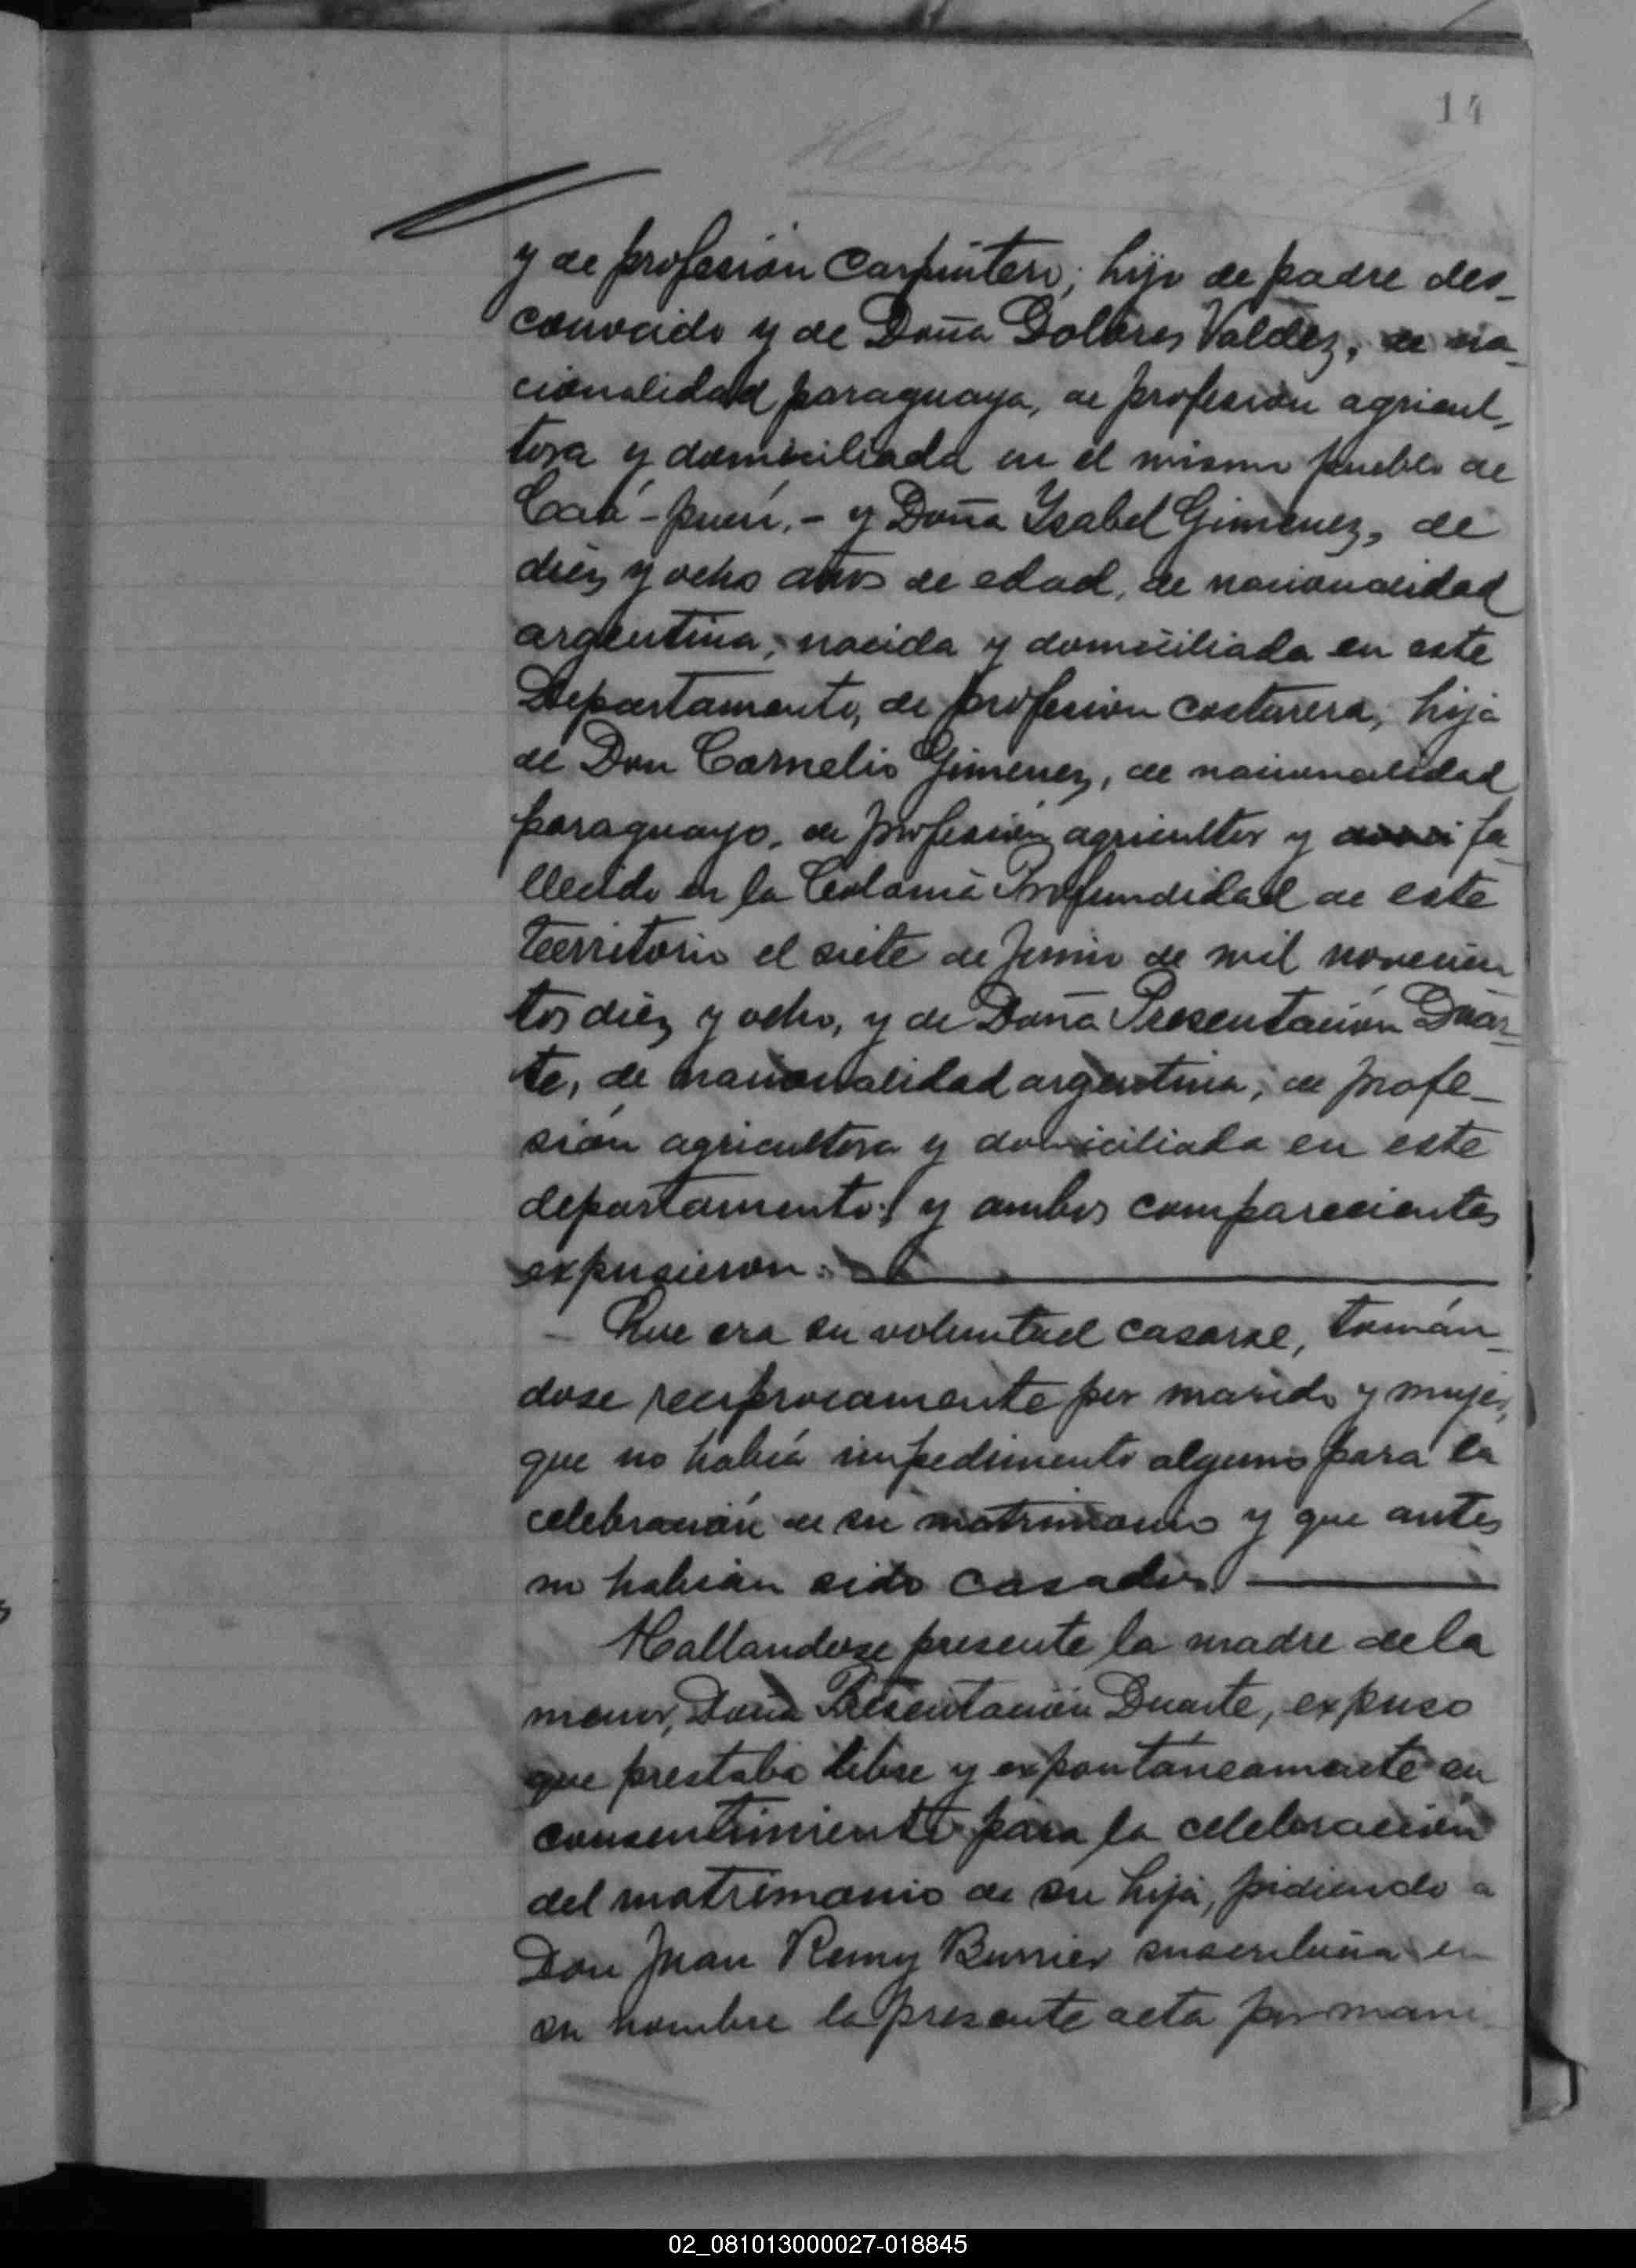 14
y de profesión carpintero; hijo de padre des-
conocido y de Doña Dolores Valdez, de na-
cionalidad paraguaya, de profesión agricul-
tora y domiciliada en el mismo pueblo de
y Doña Ysabel Gimenez, de
diez y ocho años de edad, de nacionalidad
argentina, nacida y domiciliada en este
Departamento, de profesion costurera, hija
de Don Cornelio Gimenez, de nacionalidad
paraguayo, de profesión agricultor y fa-
llecido en la Colonia Profundidad de este
Territorio el siete de Junio de mil novecien
tos diez y ocho, y de Doña Presentación Duar-
te, de nacionalidad argentina, de profe-
sión agricultora y domiciliada en este
departamento; y ambos comparecientes
expusieron:
- Que era su voluntad casarse, tomán-
dose reciprocamente por marido y mujer,
que no había impedimento alguno para la
celebración de su matrimonio y que antes
no habían sido casados.
Hallandose presente la madre de la
menor, Doña Presentación Duarte, expuso
que prestaba libre y expontáneamente su
consentimiento para la celebración
del matrimonio de su hija, pidiendo a
Don Juan Remy suscribiera en
su nombre la presente acta por mani
02_081013000027-018845